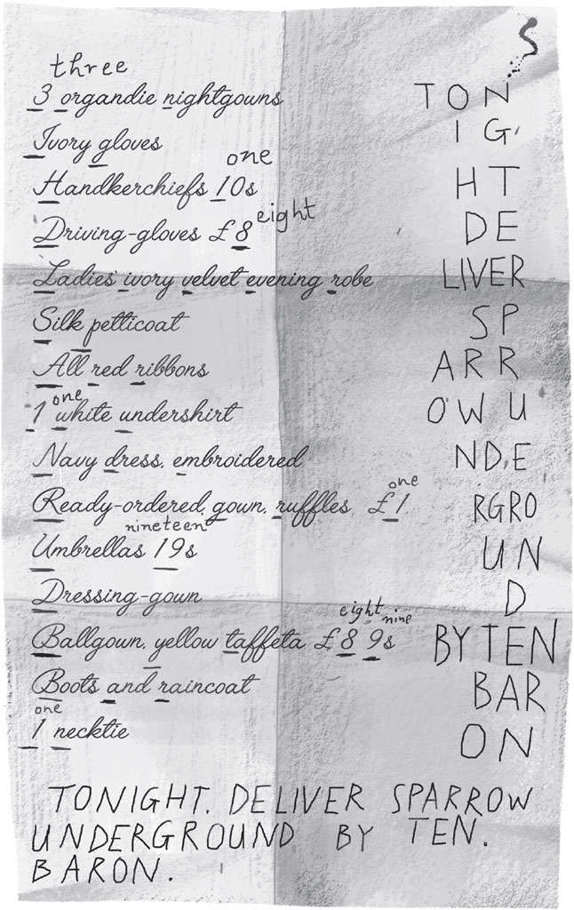 S
three
3 organdie nightgowns TON
Ivory gloves IG
one
Handkerchiefs 10s HT
eight
Driving-gloves £8 DE
Ladies' ivory velvet evening robe LIVER
Silk petticoat SP
All red ribbons ARR
one
1 white undershirt OWU
Navy dress, embroidered NDE
one
Ready-ordered gown, ruffles £1 RGRO
nineteen
Umbrellas 19s UN
Dressing-gown D
eight nine
Ballgown, yellow taffeta £8 9s BYTEN
Boots and raincoat BAR
one
1 necktie ON
TONIGHT. DELIVER SPARROW
UNDERGROUND BY TEN.
BARON.